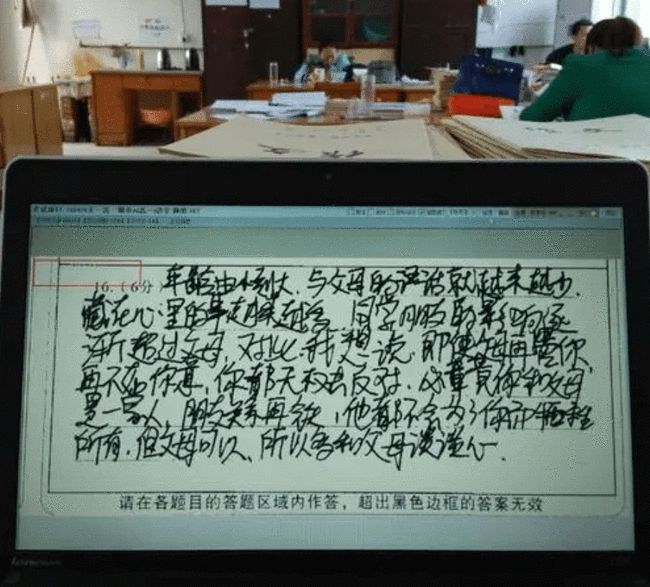 作文
16.（6分）年龄由小到大，与父母的说话就越来越少，
藏在心里的事越来越多，同学朋友的影响逐
渐超过父母，对此，我想说，即使父母再墨你，
再不如你意，你都无权去反对，必竟你和父母
是一家人，朋友关系再铁，他都不会为了你而牺牲
所有，但父母可以，所以多和父母谈谈心。
请在各题目的答题区域内作答，超出黑色边框的答案无效
lenovo